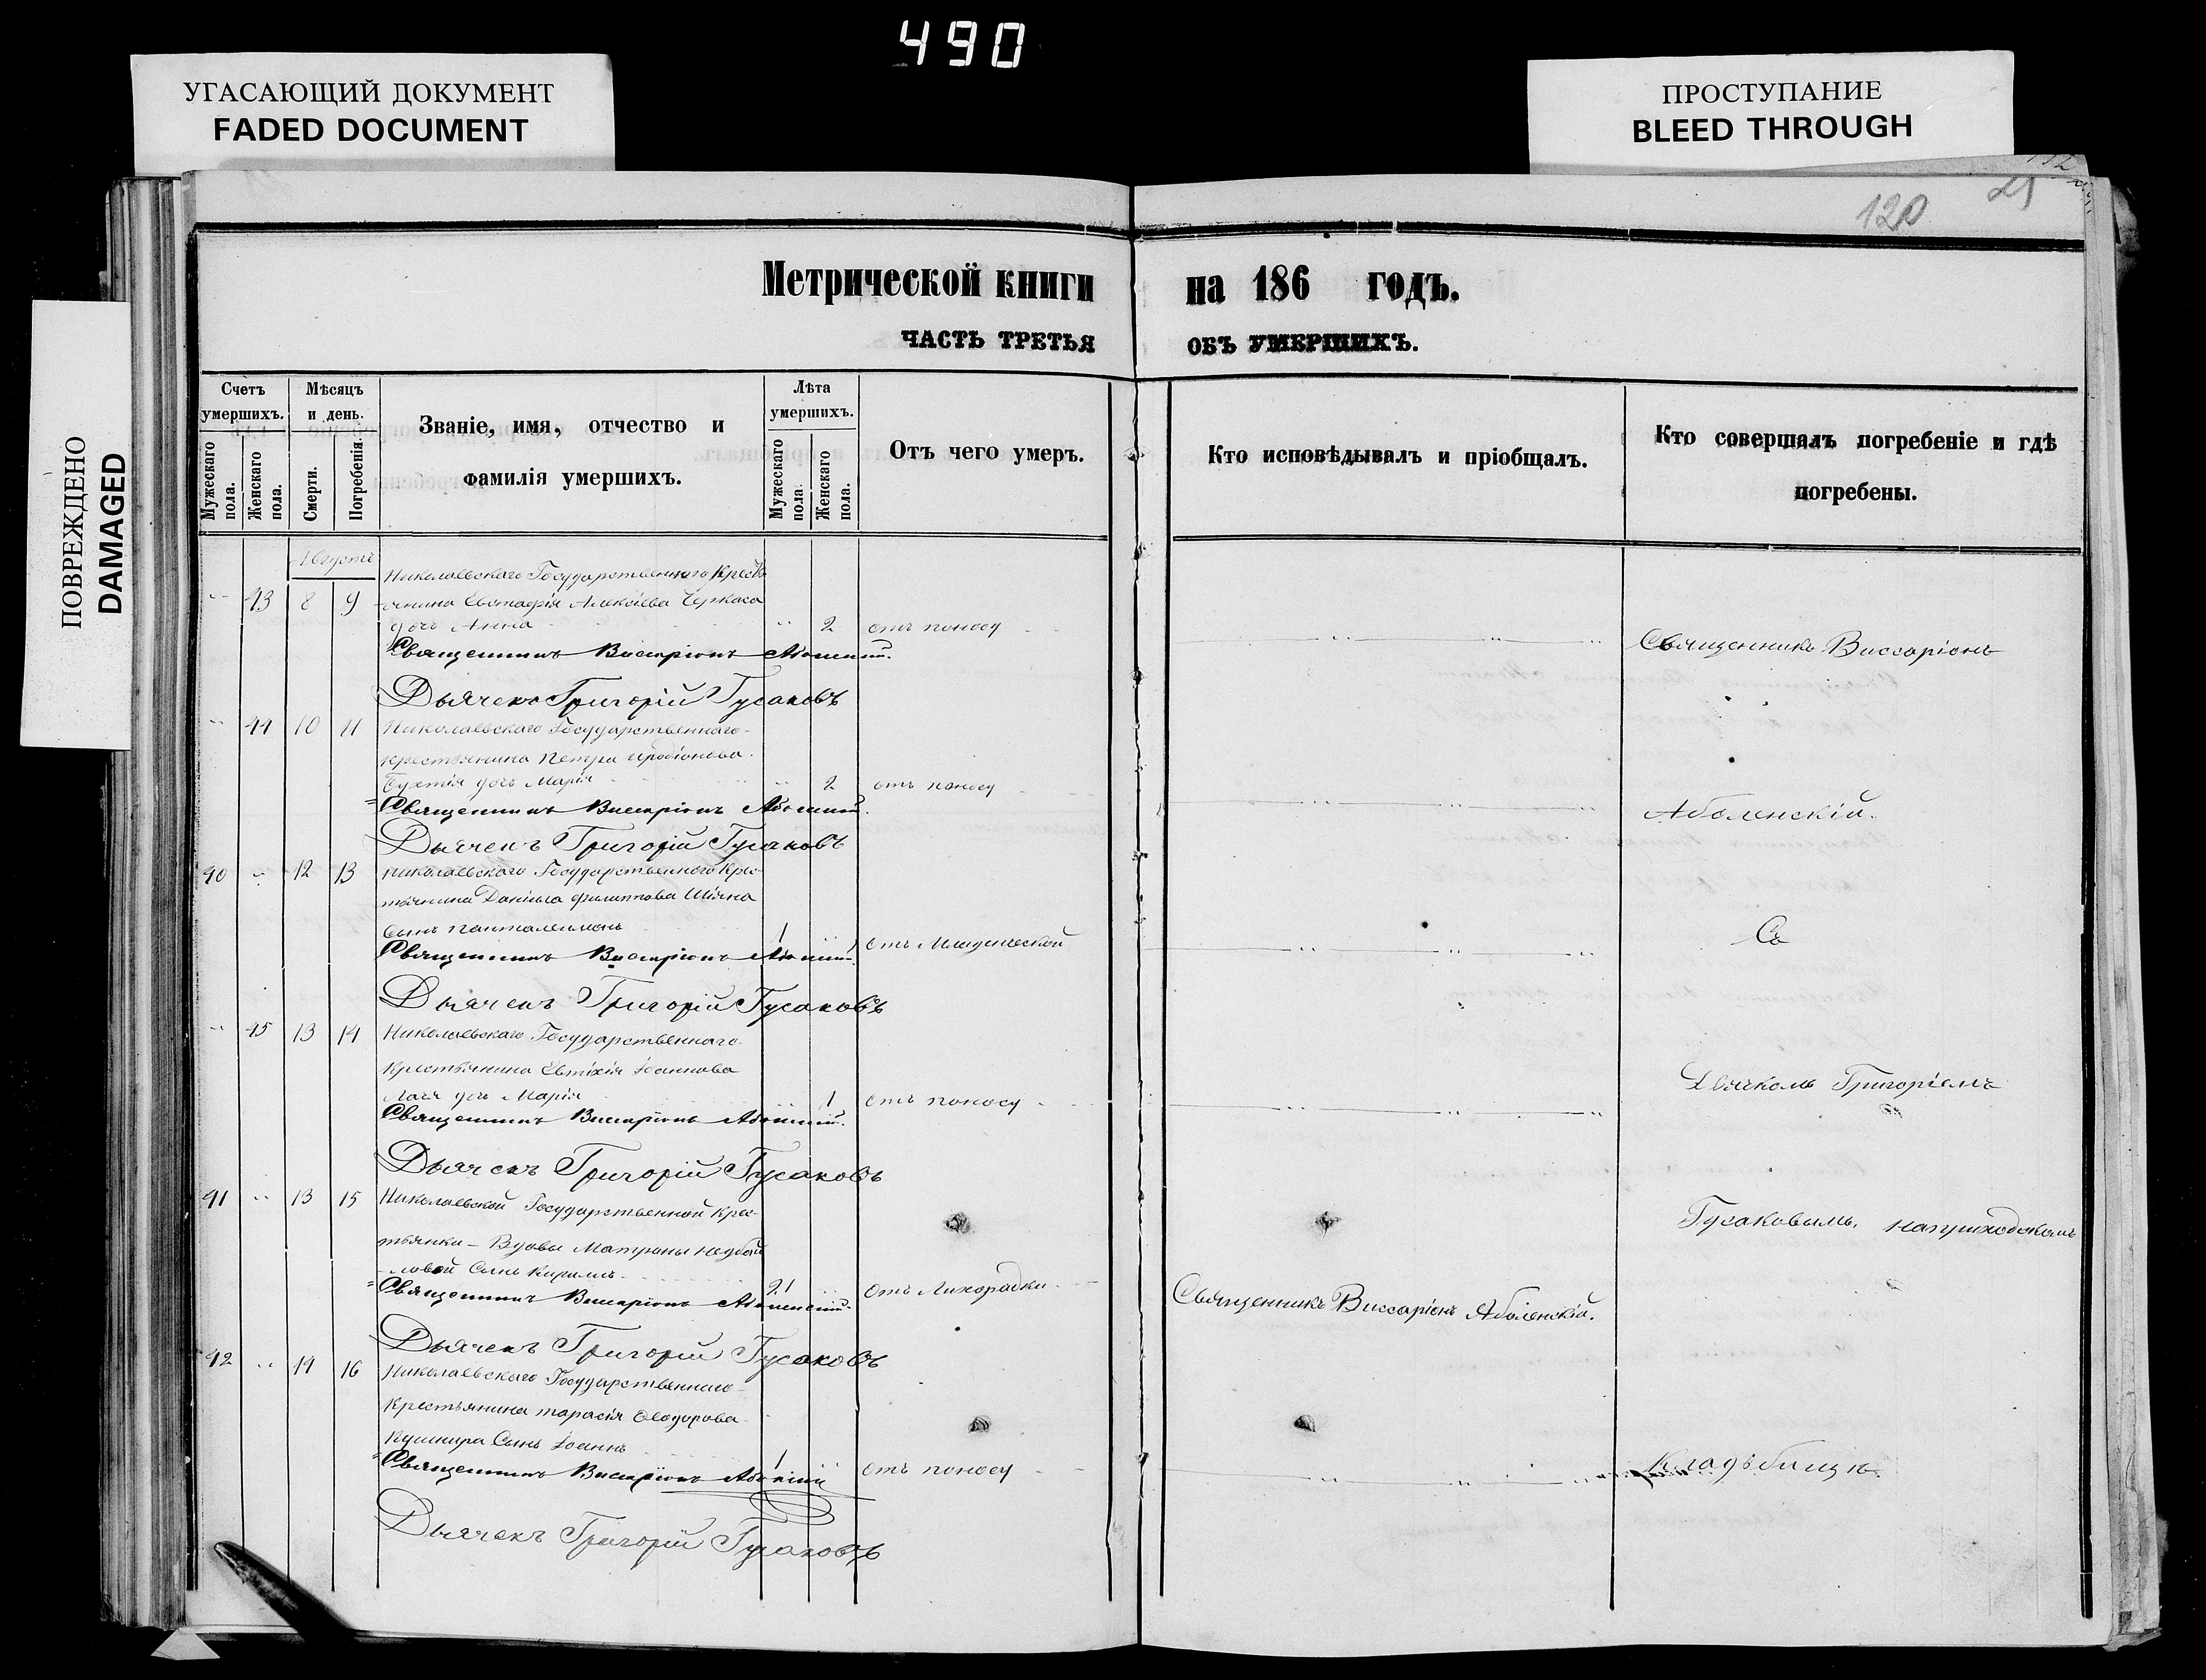 490
УГАСАЮЩИЙ ДОКУМЕНТ
FADED DOCUMENT
ПРОСТУПАНИЕ
BLEED THROUGH
ПОВРЕЖДЕНО
DAMAGED
120
Метрической книги на 186 годъ.
ЧАСТЬ ТРЕТЬЯ ОБЪ УМЕРШИХЪ.
Счетъ умершихъ.
Мужескаго пола.
Женскаго пола.
Мѣсяцъ и день.
Смерти.
Погребенія.
Званіе, имя, отчество и
фамилія умершихъ.
Лѣта умершихъ.
Мужескаго пола.
Женскаго пола.
Отъ чего умеръ.
Кто исповѣдывалъ и пріобщалъ.
Кто совершалъ погребеніе и гдѣ
погребены.
Августъ
Николаевскаго Государственнаго Кресть
43 8 9 янина Евстафія Алексіева Черкаса
дочь Анна 2 отъ поносу
Священникъ Виссаріонъ Аболенскій.
Дьячекъ Григорій Гусаковъ
44 10 11 Николаевскаго Государственнаго
крестьянина Петра Иродіонова
дочь Марія 2 отъ поносу
Священникъ Виссаріонъ Аболенскій.
Дьячекъ Григорій Гусаковъ
40 12 13 Николаевскаго Государственнаго Крес
тьянина Даніила Филиппова Шіяна
сынъ Панталеимонъ 1 отъ Младенческой
Священникъ Виссаріонъ Аболенскій.
Дьячекъ Григорій Гусаковъ
45 13 14 Николаевскаго Государственнаго
Крестьянина Евтіхія Іоаннова
дочь Марія 1 отъ поносу
Священникъ Виссаріонъ Аболенскій.
Дьячекъ Григорій Гусаковъ
41 13 15 Николаевской Государственной Крес
тьянки - Вдовы Матроны Недбай
ловой Сынъ Кириллъ 21 отъ Лихорадки
Священникъ Виссаріонъ Аболенскій.
Дьячекъ Григорій Гусаковъ
42 14 16 Николаевскаго Государственнаго
Крестьянина Тарасія Ѳеодорова
Кушнира Сынъ Іоаннъ 1 отъ поносу
Священникъ Виссаріонъ Аболенскій
Дьячекъ Григорій Гусаковъ
Священникъ Виссаріонъ Аболенскій.
Священникъ Виссаріонъ
Аболенскій.
Съ
Дьячкомъ Григоріемъ
Гусаковымъ, на приходскомъ
Кладьбищѣ.